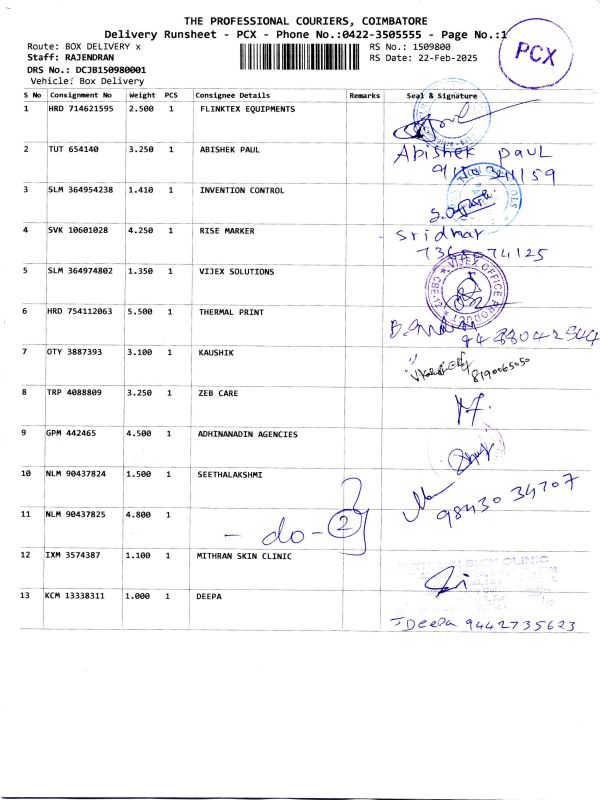 THE PROFESSIONAL COURIERS, COIMBATORE
Delivery Runsheet - PCX - Phone No.:0422-3505555 - Page No.:1
PCX
Route: BOX DELIVERY x
RS No.: 1509800
Staff: RAJENDRAN
RS Date: 22-Feb-2025
DRS No.: DCJB150980001
Vehicle: Box Delivery
S No Consignment No Weight PCS Consignee Details Remarks Seal & Signature
1 HRD 714621595 2.500 1 FLINKTEX EQUIPMENTS
2 TUT 654140 3.250 1 ABISHEK PAUL Abishek paul
3 SLM 364954238 1.410 1 INVENTION CONTROL
4 SVK 10601028 4.250 1 RISE MARKER - Sridhar
5 SLM 364974802 1.350 1 VIJEX SOLUTIONS VIJEX OFFICE PRODUCT
6 HRD 754112063 5.500 1 THERMAL PRINT
7 OTY 3887393 3.100 1 KAUSHIK 8190065050
8 TRP 4088809 3.250 1 ZEB CARE
9 GPM 442465 4.500 1 ADHINANADIN AGENCIES
10 NLM 90437824 1.500 1 SEETHALAKSHMI 9843034707
11 NLM 90437825 4.800 1 - do - 2
12 IXM 3574387 1.100 1 MITHRAN SKIN CLINIC SKIN CLINIC
13 KCM 13338311 1.000 1 DEEPA
J Deepa 9442735623